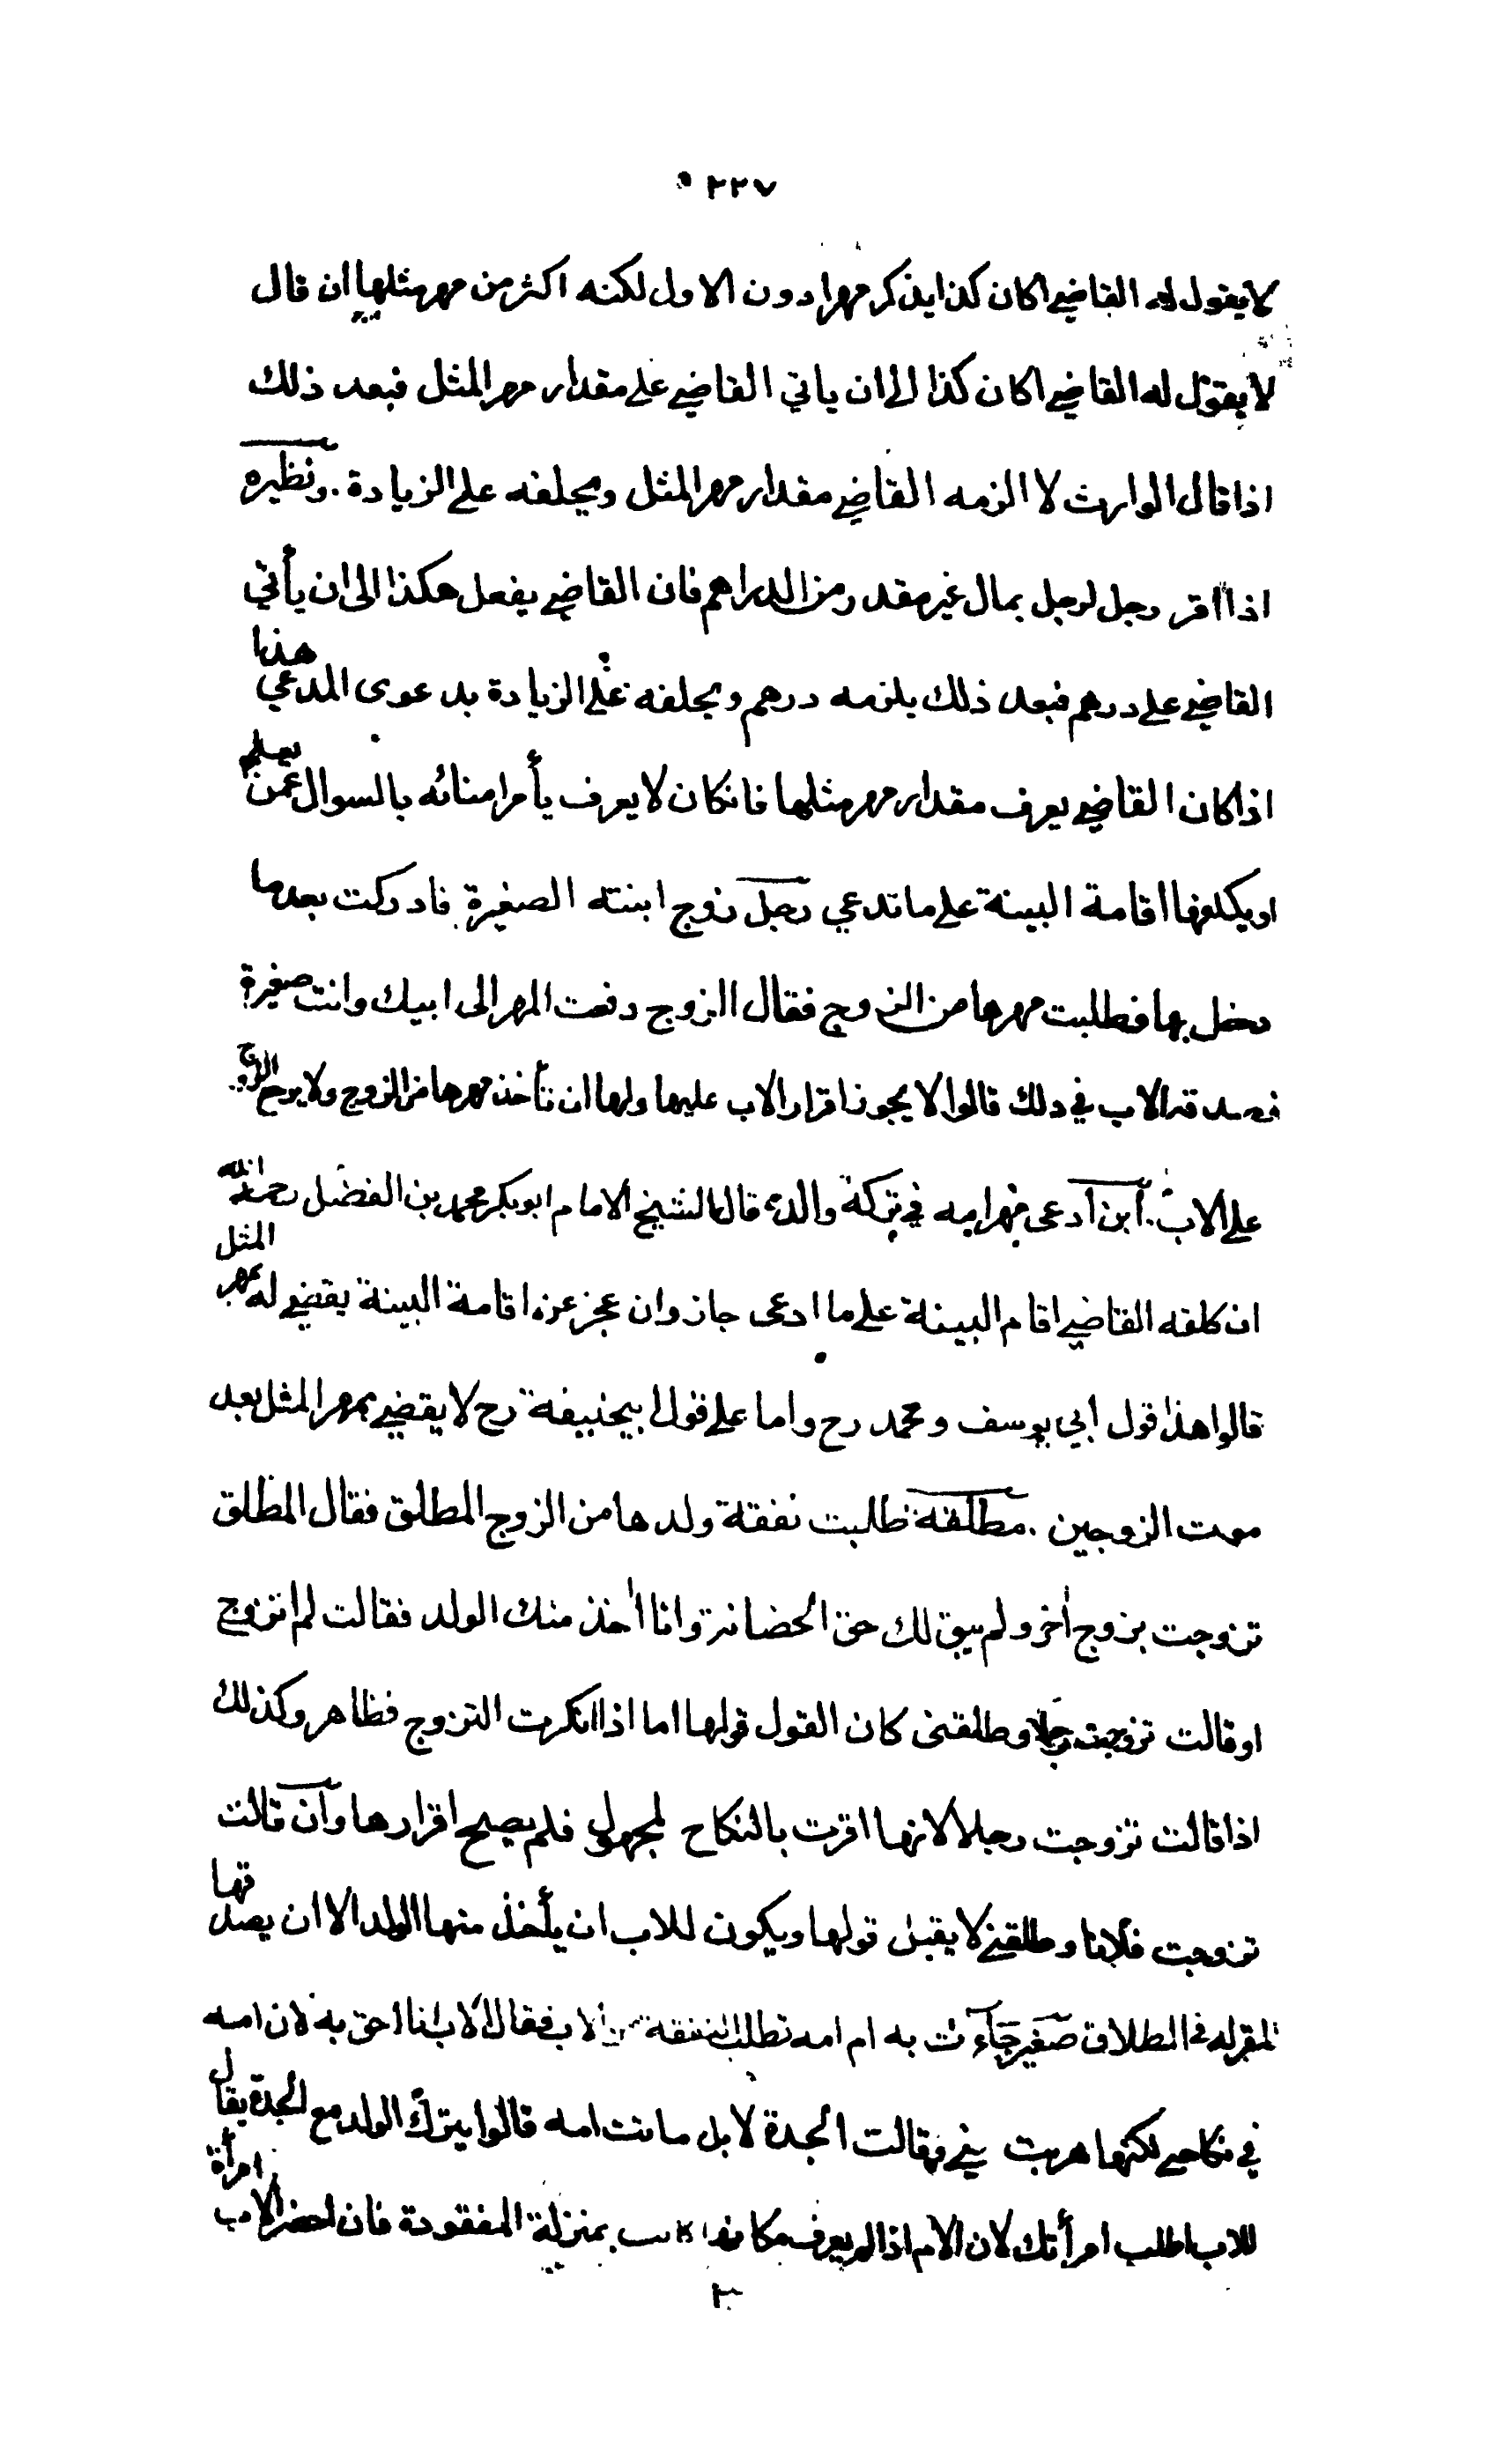 ٢٢٧
لا يقول له القاضي اكان كذا يذكر مهرا دون الاول لكنه اكثر من مهر مثلها ان قال
لا يقول له القاضي اكان كذا الى ان ياتي القاضي على مقدار مهر المثل فبعد ذلك
اذا قال الوارث لا الزمه القاضي مقدار مهر المثل ويحلفه على الزيادة . ونظيره
اذا اقر رجل لرجل بمال غير مقدر من الدراهم فان القاضي يفعل هكذا الى ان يأتي
القاضي على درهم فبعد ذلك يلزمه درهم ويحلفه على الزيادة بدعوى المدعي هذا
اذا كان القاضي يعرف مقدار مهر مثلها فانكان لا يعرف يأمر امنائه بالسوال عمن يعلم
او يكلفها اقامة البينة على ما تدعي رجل زوج ابنته الصغيرة فادركت بعدما
دخل بها فطلبت مهرها من الزوج فقال الزوج دفعت المهر الى ابيك وانت صغيرة
فصدقه الاب في ذلك قالوا لا يجوز اقرار الاب عليها ولها ان تأخذ مهرها من الزوج ولا يرجع الزوج
على الاب . ابن ادعى مهر امه في تركة والده قال الشيخ الامام ابو بكر محمد بن الفضل رحمه الله
ان كلفه القاضي اقام البينة على ما ادعى جاز وان عجز عن اقامة البينة يقضي له بمهر المثل
قالوا هذا قول ابي يوسف ومحمد رح واما على قول ابيحنيفة رح لا يقضي بمهر المثل بعد
موت الزوجين . مطلقة طلبت نفقة ولدها من الزوج المطلق فقال المطلق
تزوجت بزوج اخر ولم يبق لك حق الحضانة وانا اخذ منك الولد فقالت لم اتزوج
او قالت تزوجت رجلا وطلقني كان القول قولها اما اذا انكرت التزوج فظاهر وكذلك
اذا قالت تزوجت رجلا لانها اقرت بالنكاح لمجهول فلم يصح اقرارها وان قالت
تزوجت فلانا وطلقني لا يقبل قولها ويكون للاب ان يأخذ منها الولد الا ان يصدقها
المقر له في الطلاق صغير جاءت به ام امه تطلب النفقة من الاب فقال الاب انا احق به لان امه
في نكاحي لكنها هربت فقالت الجدة لا بل ماتت امه قالوا يترك الولد مع الجدة يقال
للاب اطلب امرأتك لان الام اذا لم يعرف مكانها كانت بمنزلة المفقودة فان احضر الاب امرأة